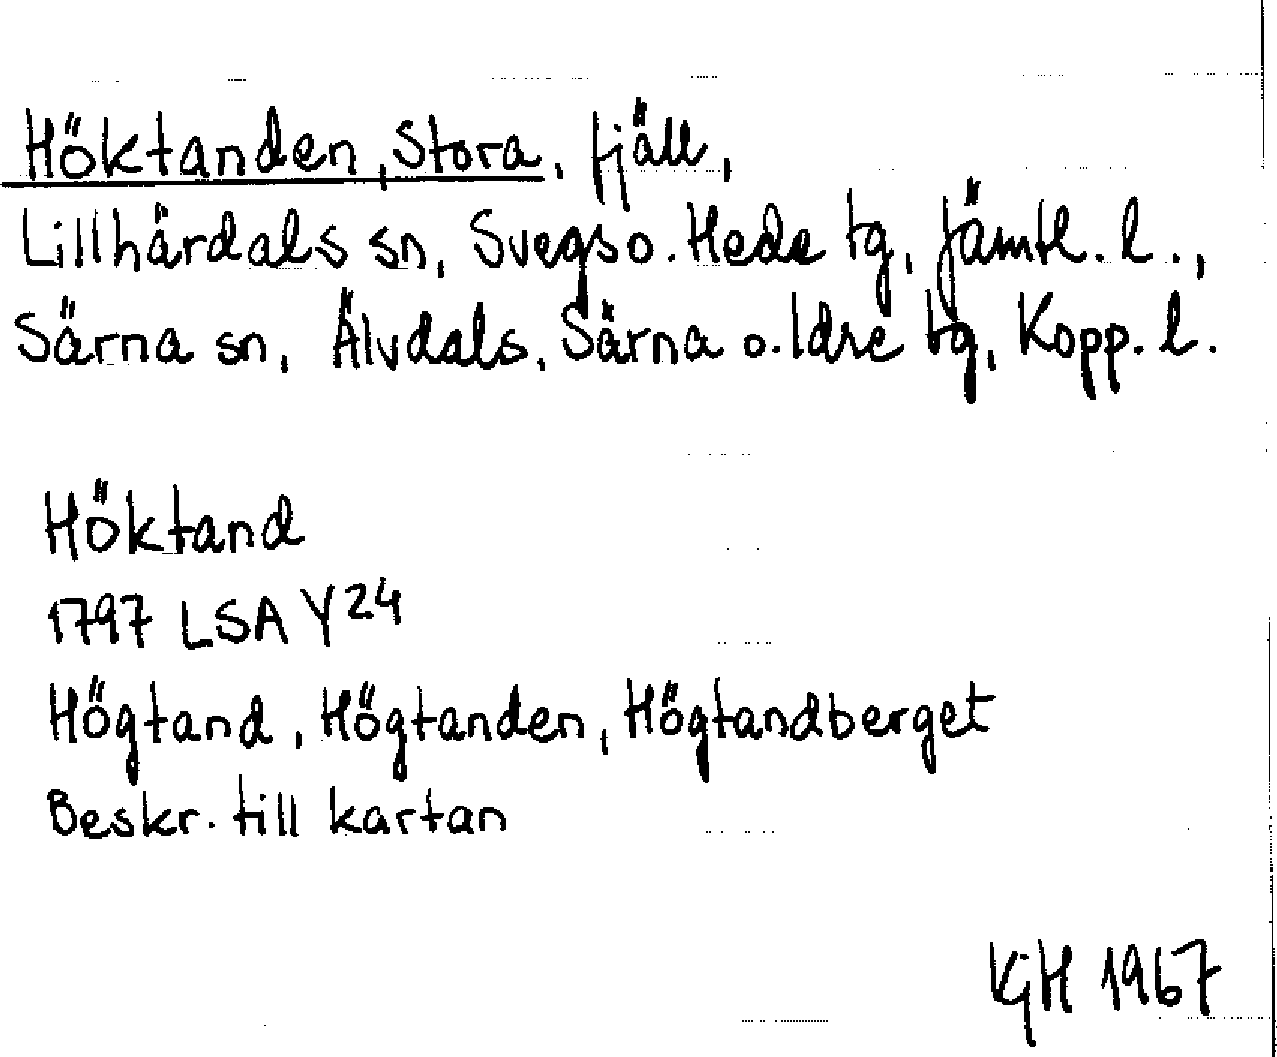 Höktanden, Stora, fjäll,
Lillhärdals sn, Svegs o. Hede tg, Jämtl. l.,
Särna sn, Älvdals, Särna o. Idre tg, Kopp. l.
Höktand
1797 LSA Y24
Högtand, Högtanden, Högtandberget
Beskr. till kartan
KGH 1967